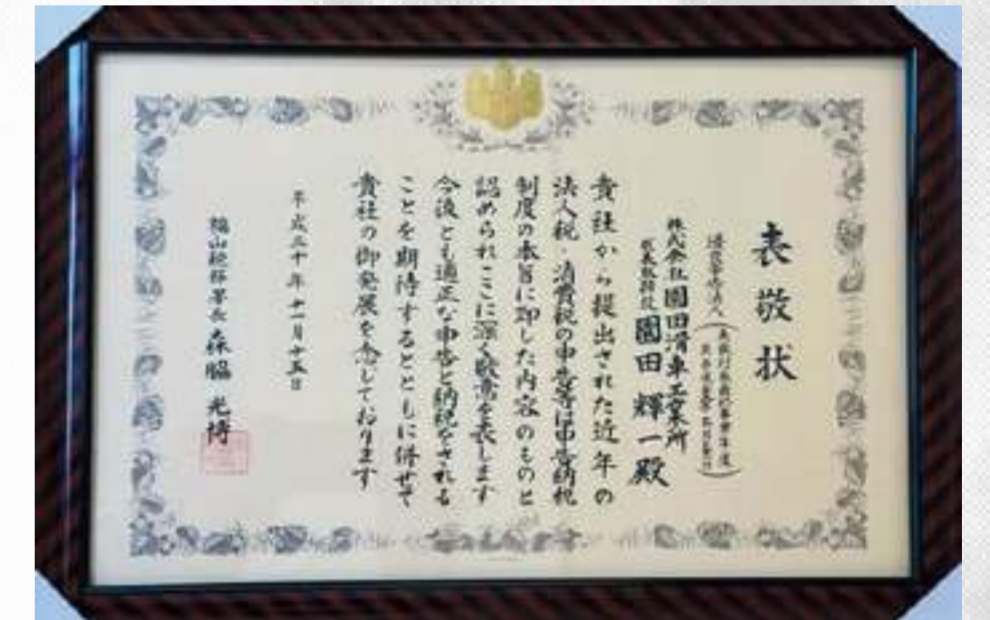 表敬状
優良申告法人
株式会社 園田滑車工業所
代表取締役 園田 輝一 殿
貴社から提出された近年の
法人税・消費税の申告等は申告納税
制度の本旨に即した内容のものと
認められここに深く敬意を表します
今後とも適正な申告と納税をされる
ことを期待するとともに併せて
貴社の御発展を念じております
平成三十年十一月十五日
福山税務署長 森脇 光博